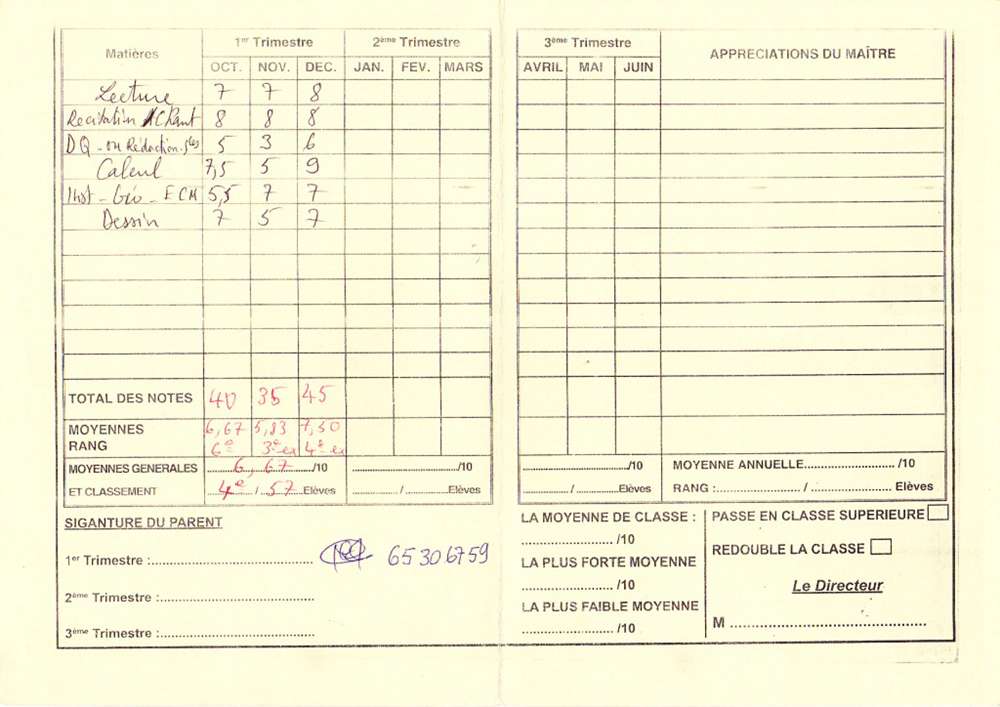 Matières 1er Trimestre 2ème Trimestre 3ème Trimestre APPRECIATIONS DU MAÎTRE
OCT. NOV. DEC. JAN. FEV. MARS AVRIL MAI JUIN
Lecture 7 7 8
Recitation /Chant 8 8 8
DQ - ou Rédaction 5 3 6
Calcul 7,5 5 9
Hist - Géo - ECM 5,5 7 7
Dessin 7 5 7
TOTAL DES NOTES 40 35 45
MOYENNES 6,67 5,83 7,50
RANG 6e 3e ex 4e ex
MOYENNES GENERALES 6,67 /10 /10 /10 MOYENNE ANNUELLE /10
ET CLASSEMENT 4e / 57 Elèves / Elèves / Elèves RANG : / Elèves
SIGANTURE DU PARENT
1er Trimestre : 65306759
2ème Trimestre :
3ème Trimestre :
LA MOYENNE DE CLASSE :
/10
LA PLUS FORTE MOYENNE
/10
LA PLUS FAIBLE MOYENNE
/10
PASSE EN CLASSE SUPERIEURE
REDOUBLE LA CLASSE
Le Directeur
M